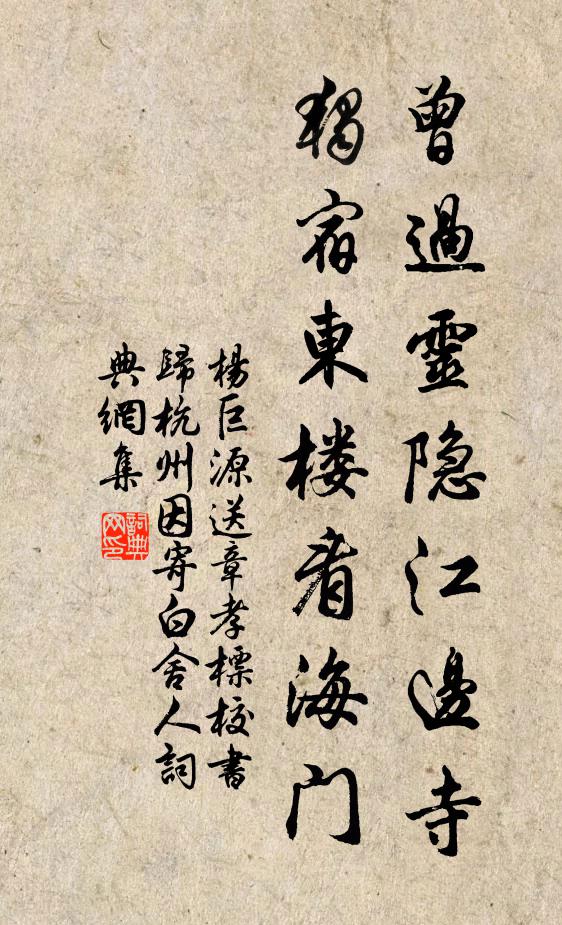 曾過靈隐江邊寺
獨宿東楼看海门
楊巨源送章孝標校書
歸杭州因寄白舍人詞
典網集
詞典
网印